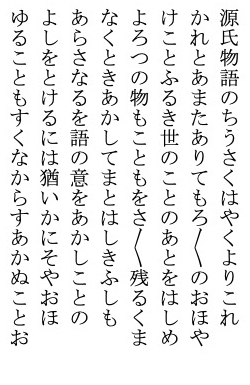 源氏物語のちうさくはやくよりこれ
かれとあまたありてもろ〳〵のおほや
けことふるき世のことのあとをはしめ
よろつの物もこともをさ〳〵残るくま
なくときあかしてまとはしきふしも
あらさなるを語の意をあかしことの
よしをとけるには猶いかにそやおほ
ゆることもすくなからすあかぬことお